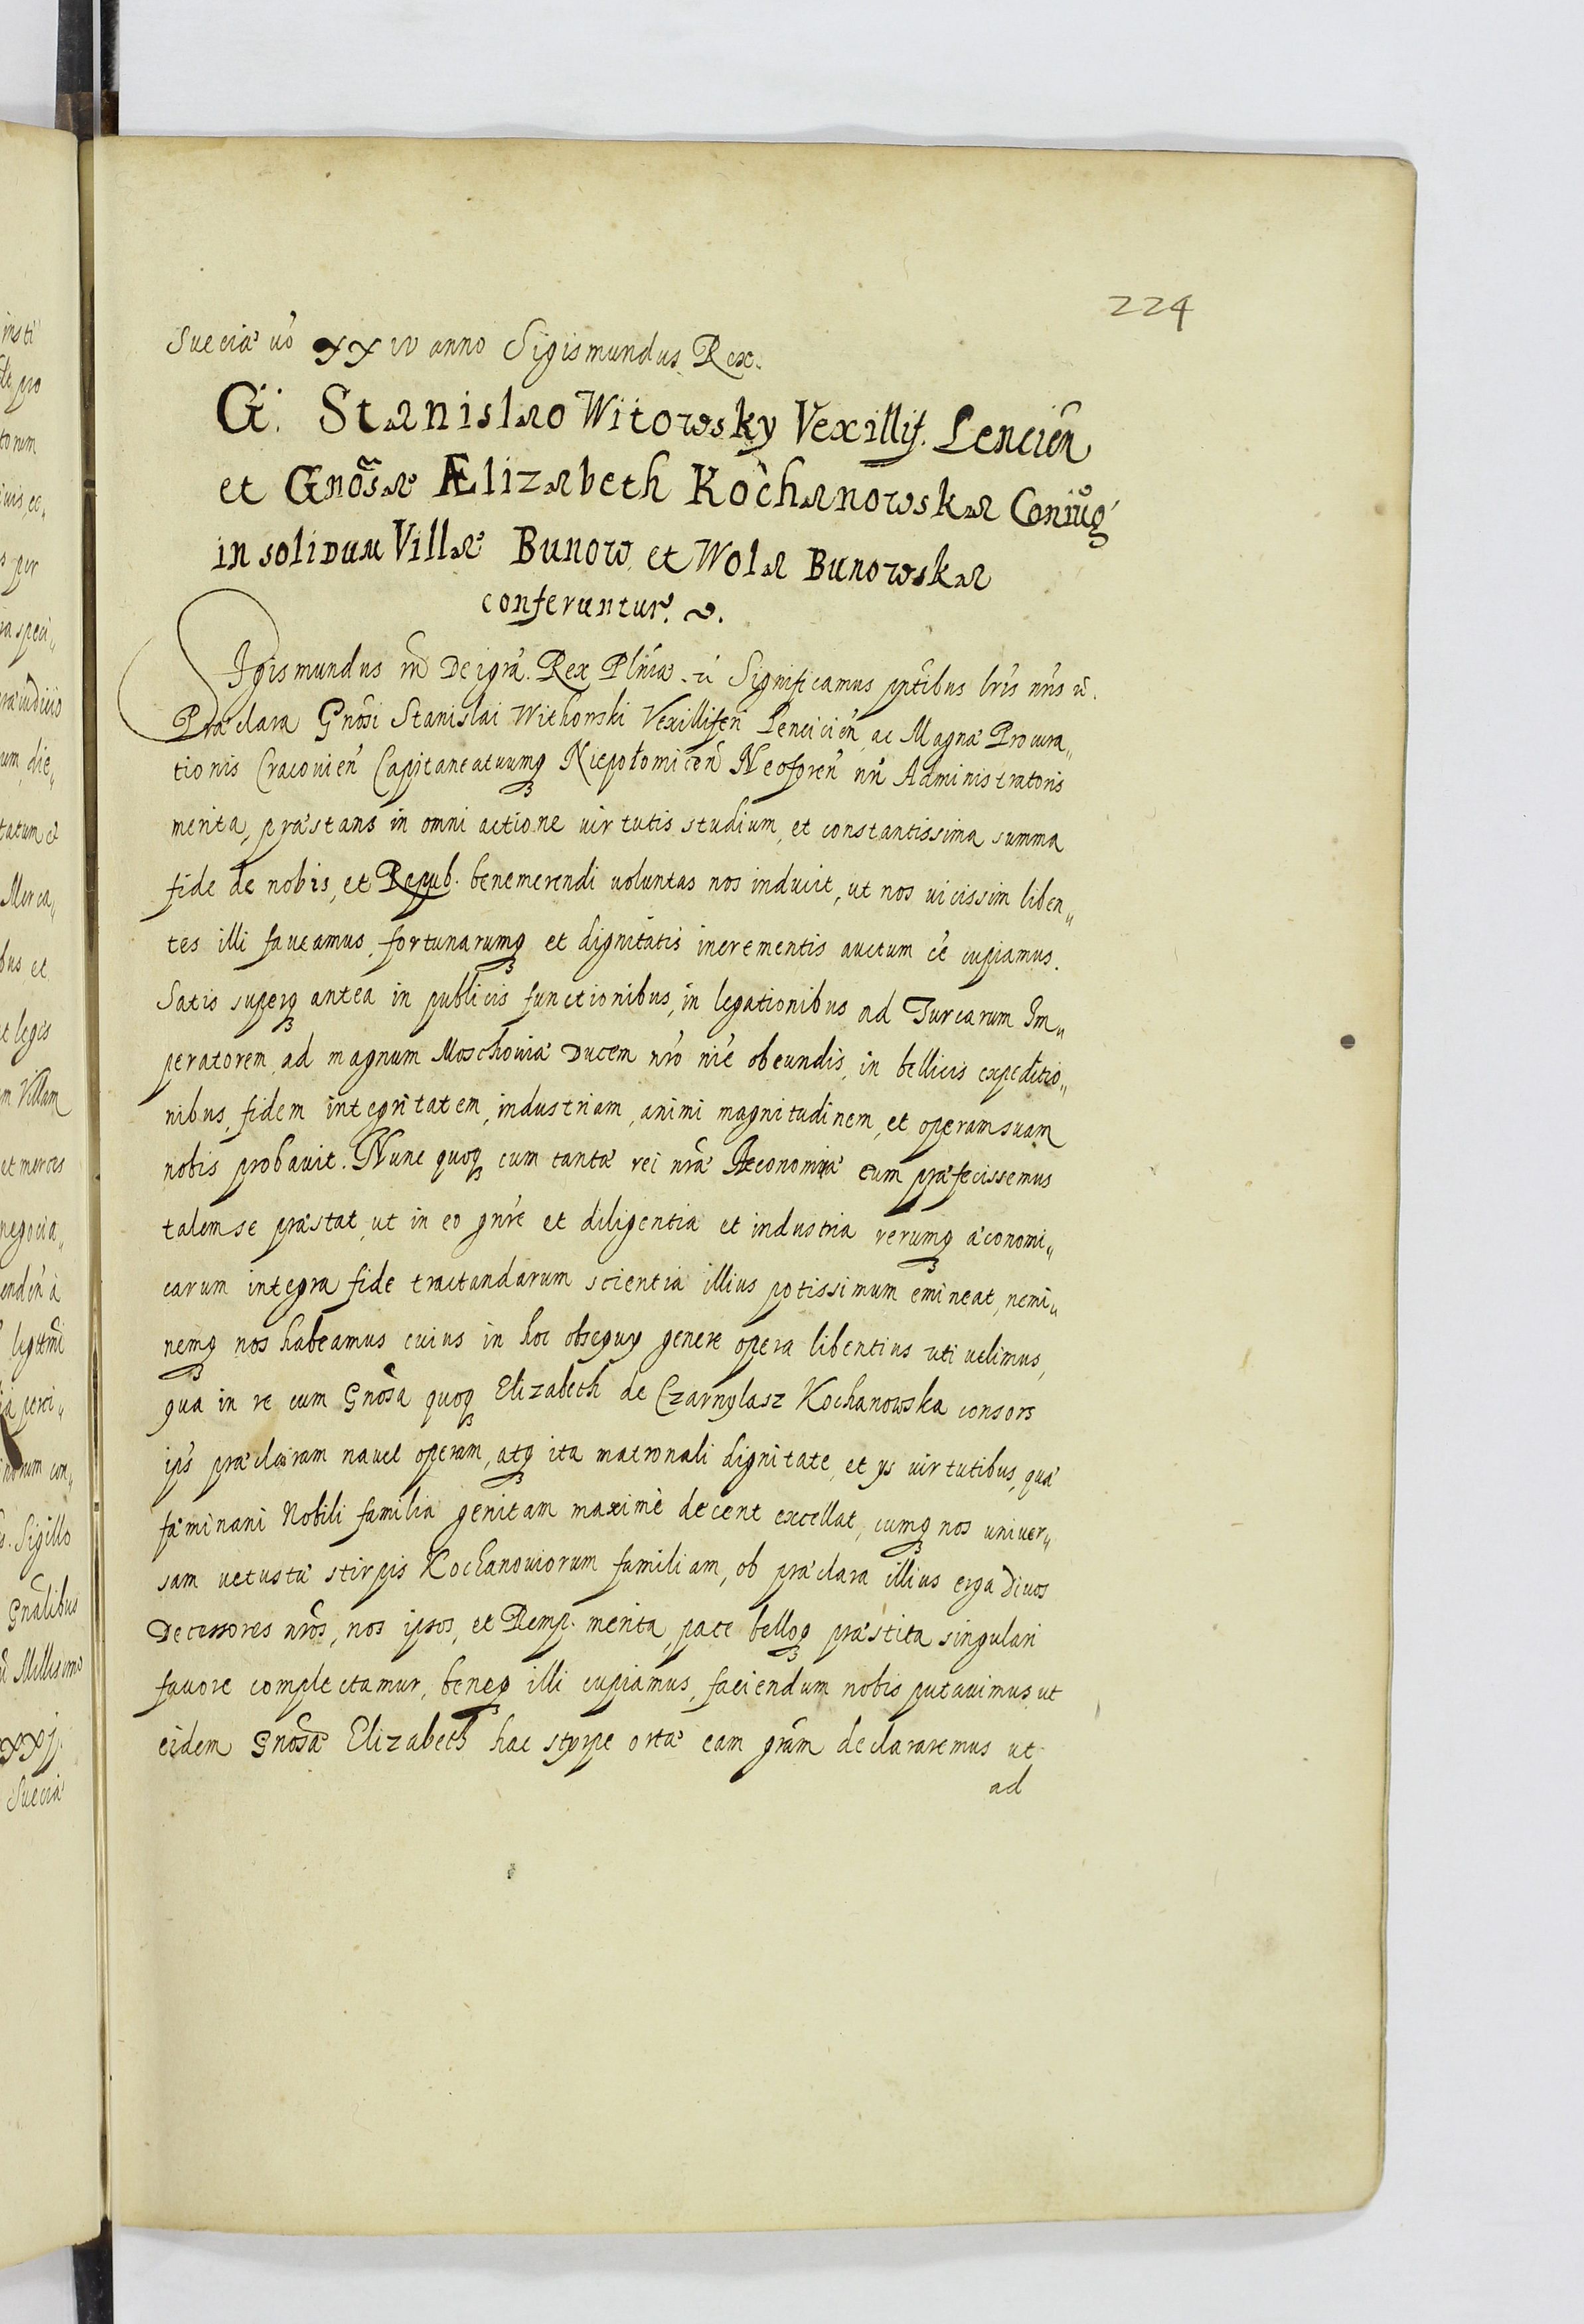 224
Sueciæ uõ XXIV anno Sigismundus Rex.
G. Stanislao Witowsky Vexillif. Lencicēn
et Gnōsæ Ælizabeth Kochanowska Coniug
in solidum Villæ Bunow et Wola Bunowska
conferuntur.
Sigismundus Dei grã. Rex Plniæ. Significamus pñtibus lrĩs nrĩs
Præclara Gnõsi Stanislai Withowski Vexilliferi Lencicieñ, ac Magnæ Procura„
tionis Cracouieñ Capitaneatuumq Niepołomiceñ Neoforeñ nři Administratoris
merita, præstans in omni actione uirtutis studium, et constantissima summa
fide de nobis, et Repub. benemerendi uoluntas nos inducit, ut nos uicissim liben„
tes illi faueamus, fortunarumq et dignitatis incrementis auctum cẽ cupiamus.
Satis superq antea in publicis functionibus, in legationibus ad Turcarum Im„
peratorem, ad magnum Moschouiæ Ducem nrõ nĩe obeundis, in bellicis expeditio„
nibus, fidem integritatem, industriam, animi magnitudinem, et operam suam
nobis probauit. Nunc quoq cum tantæ rei nrãe Æconomiæ eum præfecissemus
talem se præstat, ut in eo gnře et diligentia et industria rerumq æconomi„
carum integra fide tractandarum scientia illius potissimum emineat, nemi„
nemq nos habeamus cuius in hoc obsequy genere opera libentius uti uelimus,
qua in re cum Gnõsa quoq Elizabeth de Czarnylasz Kochanowska consors
ips̃ præclaram nauet operam, atq ita matronali dignitate, et ys uirtutibus, quæ
fæminani Nobili familia genitam maximè decent excellat, cumq nos uniuer„
sam uetustæ stirpis Kochanouiorum familiam, ob præclara illius erga Diuos
Decessores nrõs, nos ipsos, et Remp. merita, pace belloq præstita singulari
fauore complectamur, beneq illi cupiamus, faciendum nobis putauimus ut
eidem Gnõsæ Elizabeth hac styrpe ortæ eam grãm declararemus ut
ad